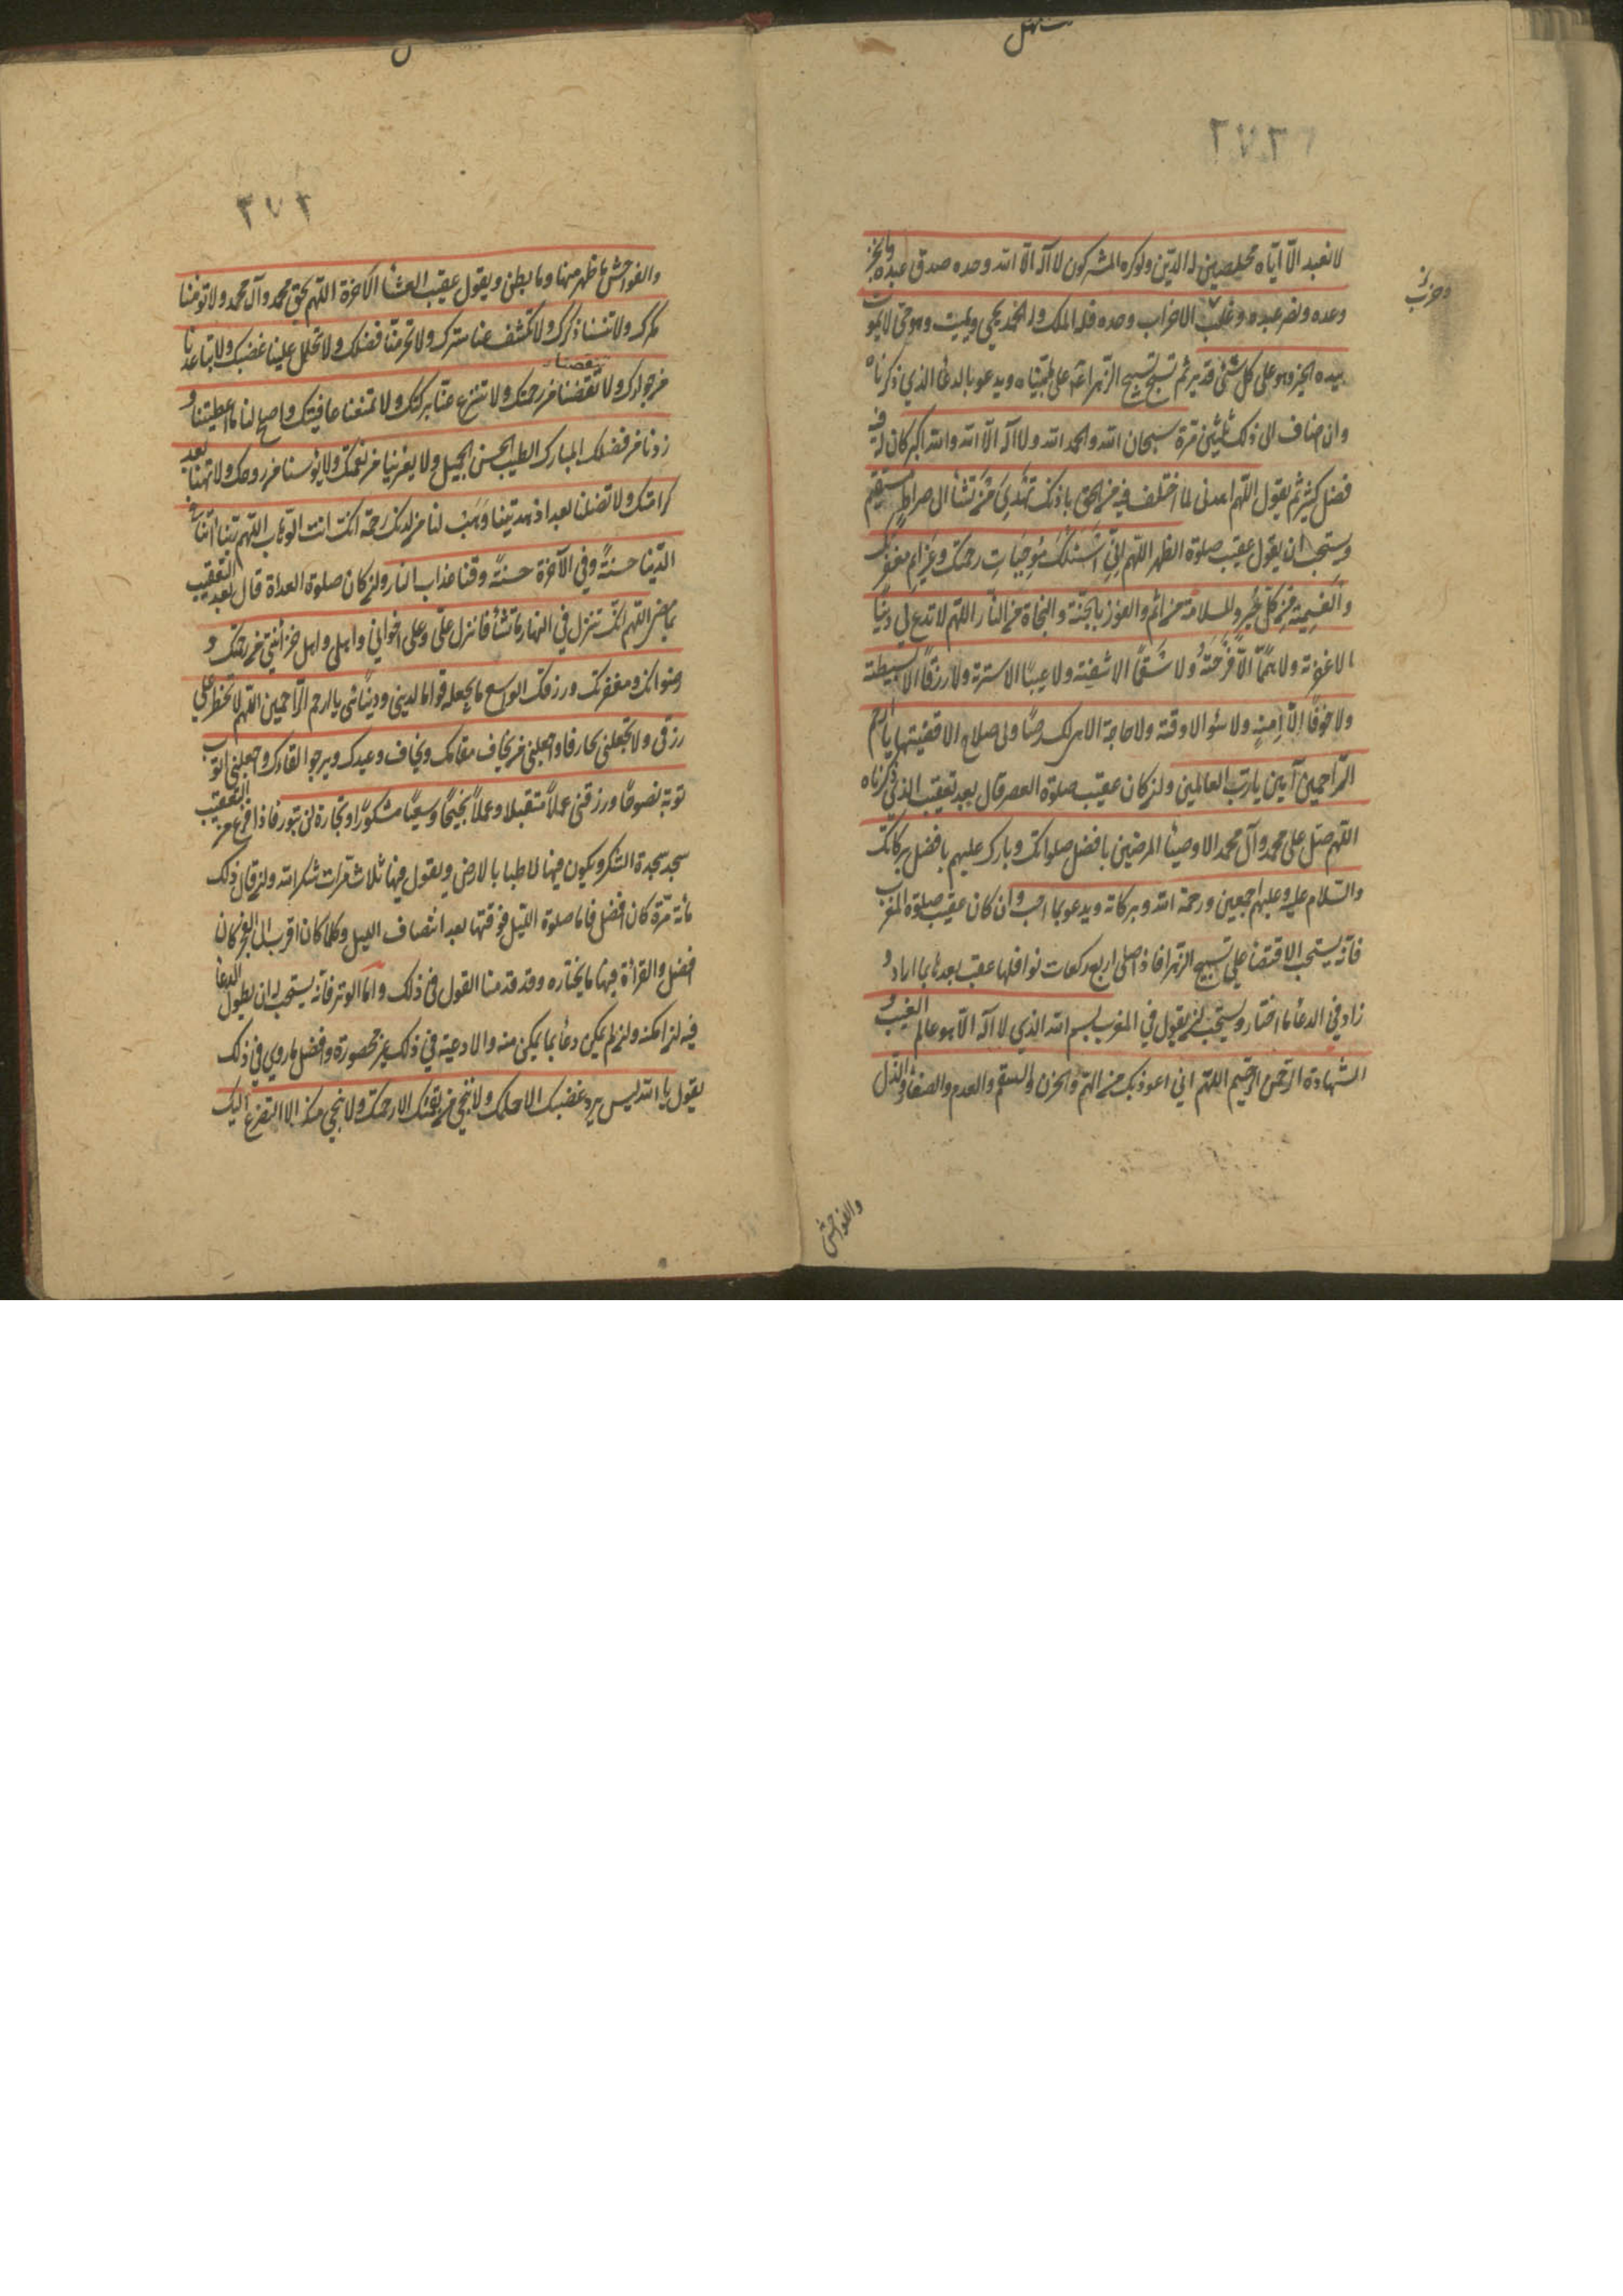 ٢٧٢
لا نعبد الّا ايّاه مخلصين له الدّين ولوكره المشركون لا اله الّا الله وحده صدق عبده وانجز
وعده ونصر عبده وغلب الاحزاب وحده فله الملك وله الحمد يحيى ويميت وهو حى لا يموت
بيده الخير وهو على كل شئ قدير ثم تسبح تسبيح الزهراء ع على ما بيّناه ويدعو بالدعاء الذي ذكرناه
وان ضاف الى ذلك ثلثين مرة سبحان الله والحمد لله ولا اله الّا الله والله اكبر كان له فى
فضل كثير ثم يقول اللهم اهدنى لما اختلف فيه من الحق باذنك تهدي من تشاء الى صراط مستقيم
ويستحب ان يقول عقيب صلوة الظهر اللهم انّى اسئلك موجبات رحمتك وعزايم مغفرتك
والغنيمة من كل خير والسلامة من اثم والفوز بالجنّة والنجاة من النار اللهم لا تدع لى ذنبًا
الا غفرته ولا همًّا الّا فرّجته ولا سقمًا الا شفيته ولا عيبًا الا سترته ولا رزقًا الا بسيطته
ولا خوفًا الّا امنته ولا سوًا الا وقته ولا حاجة الا هى لك رضًا ولى صلاح الا قضيتها يا ارحم
الرّاحمين آمين يا رب العالمين ولن كان عقيب صلوة العصر قال بعد تعقيب الذي ذكرناه
اللهم صل على محمد وآل محمد الاوصياء المرضيين بافضل صلواتك وبارك عليهم بافضل بركاتك
والسلام عليه وعليهم اجمعين ورحمة الله وبركاته ويدعو بما احب وان كان عقيب صلوة المغرب
فانّه يستحب الاقتصار على تسبيح الزهرا فاذا صلى اربع ركعات نوافلها عقب بعدها بما اراد و
زاد في الدعاء ما اختار ويستحب ان يقول في المغرب بسم الله الذي لا اله الّا هو عالم الغيب و
الشهادة الرحمن الرحيم اللهم اني اعوذ بك من الهم والحزن والسقم والعدم والصغار والذل
والفواحش
٢٧٢
والفواحش ما ظهر منها وما بطن ويقول عقيب العشاء الآخرة اللهم بحق محمد وآل محمد ولا تؤمنا
مكرك ولا تنسنا ذكرك ولا تكشف عنا سترك ولا تحرمنا فضلك ولا تحلل علينا غضبك ولا تباعدنا
من جوارك ولا تنقصنا من رحمتك ولا تنزع عنّا بركتك ولا تمنعنا عافيتك واصلح لنا ما اعطيتنا و
زدنا من فضلك المبارك الطيب الحسن الجميل ولا تغير ما بنا من نعمتك ولا تؤيسنا من روحك ولا تهنا بعد
كرامتك ولا تضلنا بعد اذ هديتنا وهب لنا من لدنك رحمة انّك انت الوهاب اللهم ربنا آتنا فى
الدّنيا حسنةً وفي الآخرة حسنةً وقنا عذاب النار ولن كان صلوة الغداة قال بعد التعقيب
بما مضى اللهم انّك تنزل في النهار ما تشاء فانزل علىّ وعلى اخواني واهلى واهل حزانتي من رحمتك و
رضوانك ومغفرتك ورزقك الواسع ما تجعله قوامًا لدينى ودنياىّ يا ارحم الرّاحمين اللهم لا تحظر علي
رزقى ولا تجعلنى محارفا واجعلنى ممن يخاف مقامك ويخاف وعيدك ويرجو لقاءك واجعلنى اتوب
توبة نصوحًا ورزقنى عملًا متقبلا وعملًا نجيحًا وسعيًا مشكورًا وتجارة لن تبور فاذا فرغ من التعقيب
سجد سجدة الشكر ويكون فيها لاطبا بالارض ويقول فيها ثلاث مرات شكرا لله ولن قال ذلك
مائة مرّة كان افضل فاما صلوة الليل فوقتها بعد انتصاف الليل وكلما كان اقرب الى الفجر كان
افضل والقراءة فيها ما يختاره وقد قدمنا القول فى ذلك وامّا الوتر فانه يستحب له ان يطول الدعاء
فيه لن امكنه ولن لم يمكن دعا بما يمكن منه والادعية في ذلك غير محصورة وافضل ما روي في ذلك
يقول يا الله ليس يرد غضبك الا حلمك ولا ينجى من نقمتك الا رحمتك ولا ينجي منك الا التضرع اليك